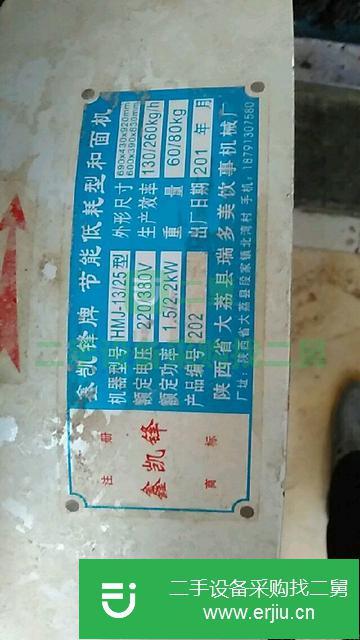 鑫凯锋牌 节能低耗型和面机
机器型号 HMJ-13/25型 外形尺寸 690x430x920mm
600x390x830mm
额定电压 220/380V 生产效率 130/260kg/h
额定功率 1.5/2.2kW 重量 60/80kg
产品编号 202 出厂日期 201 年 月
陕西省大荔县瑞多美饮事机械厂
厂址:陕西省大荔县段家镇北湾村 手机:18791307580
注册
鑫凯锋
商标
二手设备采购找二舅
www.erjiu.cn